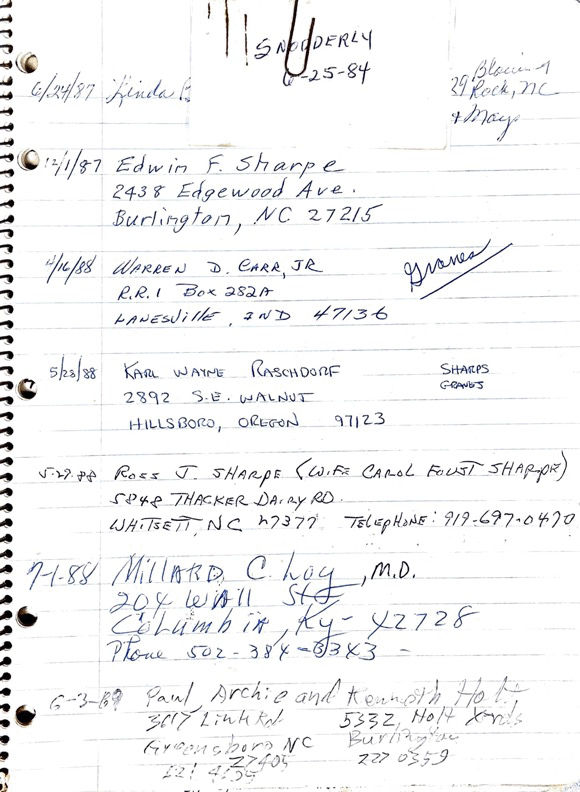 SNODDERLY
6-25-84
6/24/87 Linda B
39 Blowing
Rock, NC
& Mays
12/1/87 Edwin F. Sharpe
2438 Edgewood Ave.
Burlington, NC 27215
4/16/88 WARREN D. CARR, JR
Graves
R.R.1 Box 282A
LANESVILLE, IND 47136
5/23/88 KARL WAYNE RASCHDORF SHARPS
2892 S.E. WALNUT GRAVES
HILLSBORO, OREGON 97123
5-29-88 ROSS J. SHARPE (WIFE CAROL FOUST SHARPE)
5848 THACKER DAIRY RD.
WHITSETT, NC 27377 TELEPHONE: 919-697-0470
7-1-88 MILLARD C. Loy, M.D.
204 WALL St
COLUMBIA, Ky- 42728
Phone 502-384-3343 -
6-3-89 Paul, Archie and Kenneth Holt
3617 Link Rd 5332, Holt Xrds
Greensboro NC Burlington
27405 227 0359
621